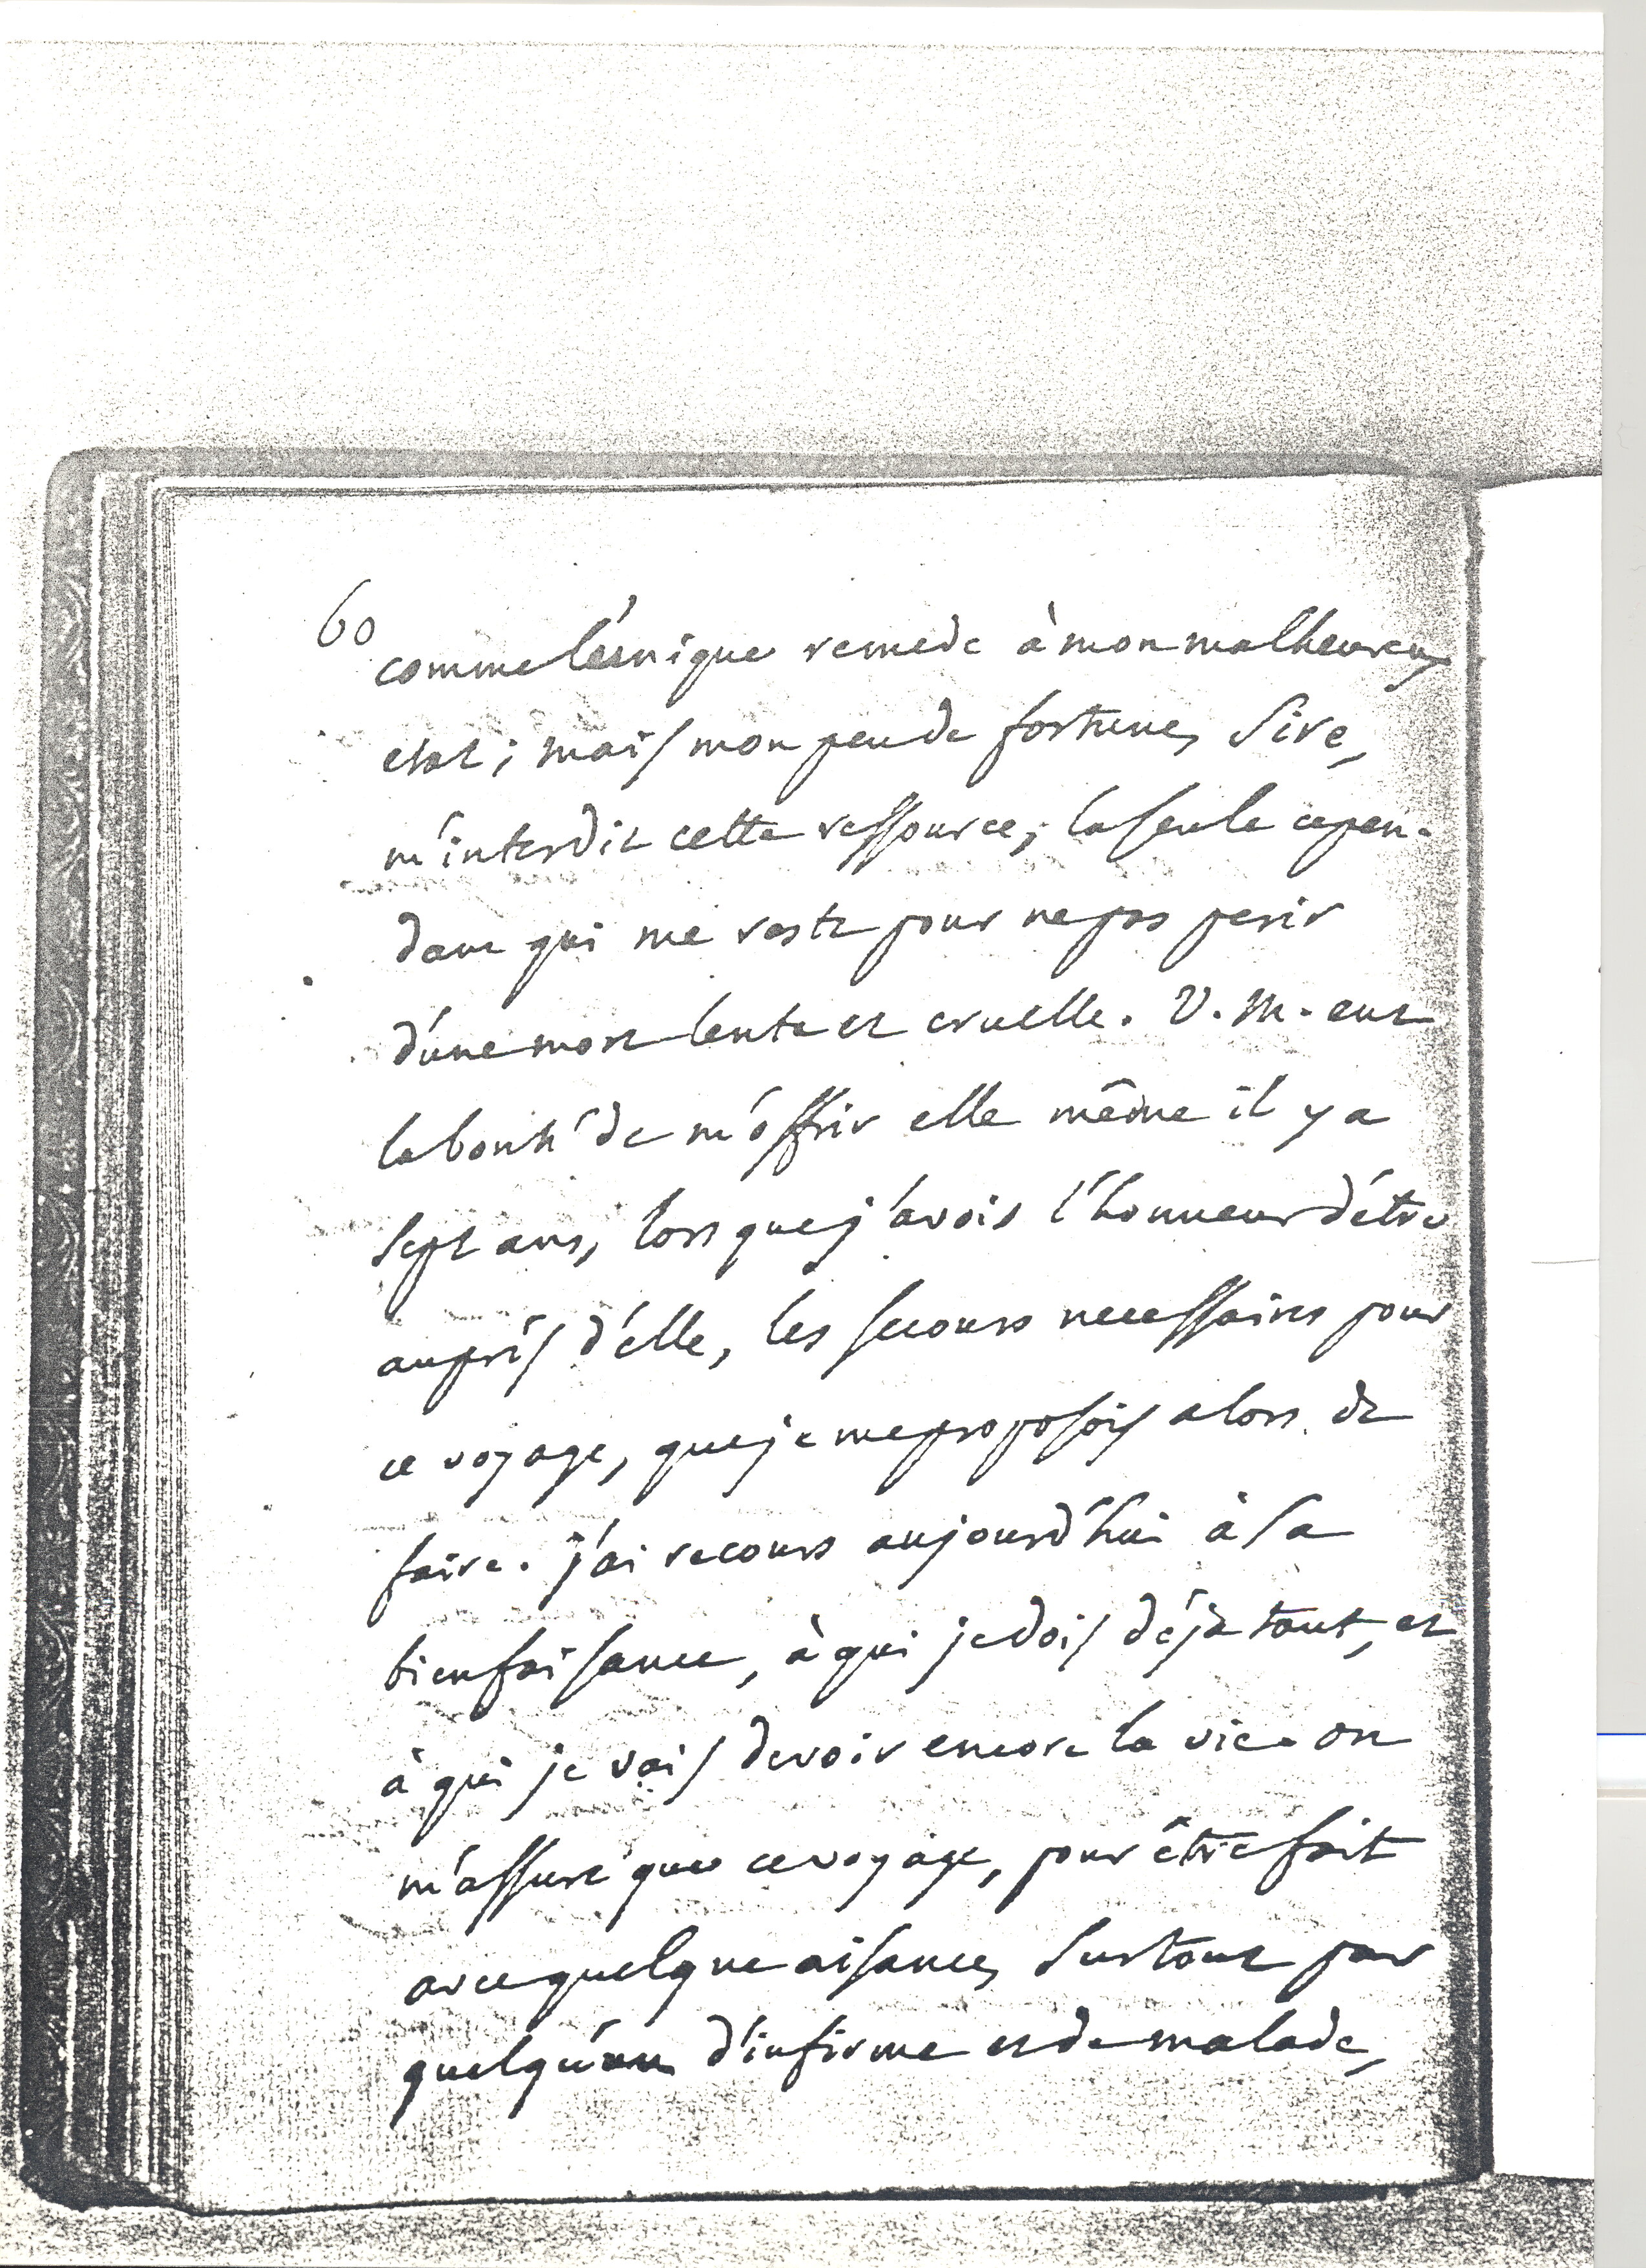 60
comme l'unique remede à mon malheureux
etat ; mais mon peu de fortune, Sire,
m'interdit cette ressource ; la seule cepen-
dant qui me reste pour ne pas perir
d'une mort lente et cruelle. V. M. eut
la bonté de m'offrir elle même il y a
sept ans, lors que j'avois l'honneur d'être
auprès d'elle, les secours necessaires pour
ce voyage, que je me proposois alors de
faire. j'ai recours aujourd'hui à sa
bienfaisance, à qui je dois déja tout, et
à qui je vais devoir encore la vie. on
m'assure que ce voyage, pour être fait
avec quelque aisance, surtout par
quelqu'un d'infirme et de malade,